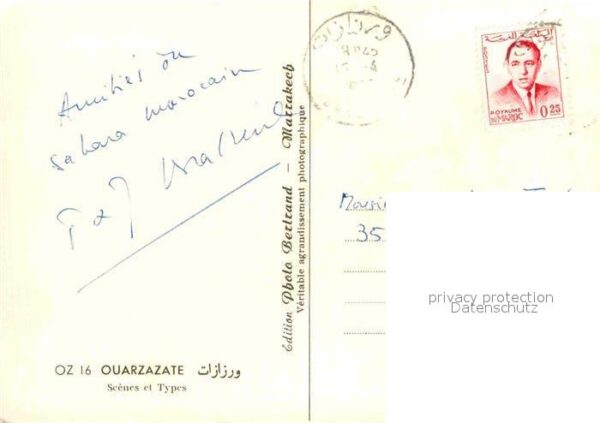 Amitiés du
Sahara marocain
OZ 16 OUARZAZATE ورزازات
Scènes et Types
Edition Photo Bertrand - Marrakech
Véritable agrandissement photographique
ورزازات
المملكة المغربية
ROYAUME
DU MAROC
0.25
35
privacy protection
Datenschutz